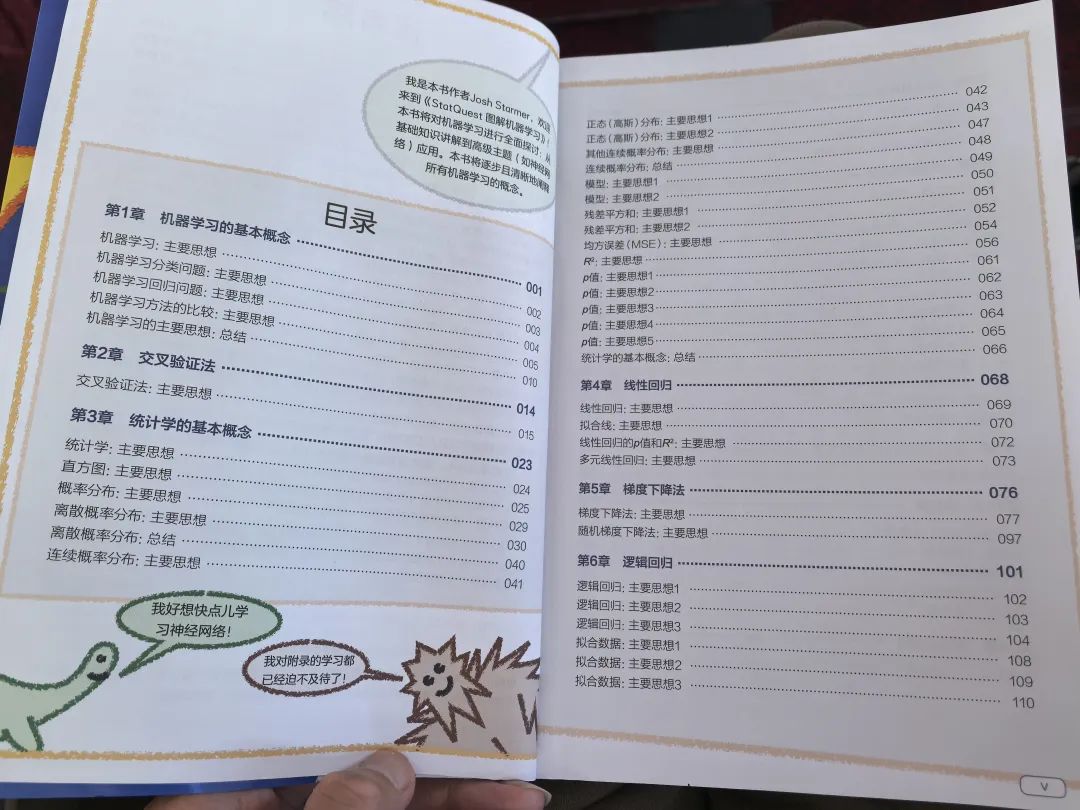 我是本书作者Josh Starmer，欢迎
来到《StatQuest 图解机器学习》！
本书将对机器学习进行全面探讨：从
基础知识讲解到高级主题（如神经网
络）应用。本书将逐步且清晰地阐释
所有机器学习的概念。
目录
第1章 机器学习的基本概念 001
机器学习：主要思想 002
机器学习分类问题：主要思想 003
机器学习回归问题：主要思想 004
机器学习方法的比较：主要思想 005
机器学习的主要思想：总结 010
第2章 交叉验证法 014
交叉验证法：主要思想 015
第3章 统计学的基本概念 023
统计学：主要思想 024
直方图：主要思想 025
概率分布：主要思想 029
离散概率分布：主要思想 030
离散概率分布：总结 040
连续概率分布：主要思想 041
我好想快点儿学
习神经网络！
我对附录的学习都
已经迫不及待了！
正态（高斯）分布：主要思想1 042
正态（高斯）分布：主要思想2 043
其他连续概率分布：主要思想 047
连续概率分布：总结 048
模型：主要思想1 049
模型：主要思想2 050
残差平方和：主要思想1 051
残差平方和：主要思想2 052
均方误差（MSE）：主要思想 054
R²：主要思想 056
p值：主要思想1 061
p值：主要思想2 062
p值：主要思想3 063
p值：主要思想4 064
p值：主要思想5 065
统计学的基本概念：总结 066
第4章 线性回归 068
线性回归：主要思想 069
拟合线：主要思想 070
线性回归的p值和R²：主要思想 072
多元线性回归：主要思想 073
第5章 梯度下降法 076
梯度下降法：主要思想 077
随机梯度下降法：主要思想 097
第6章 逻辑回归 101
逻辑回归：主要思想1 102
逻辑回归：主要思想2 103
逻辑回归：主要思想3 104
拟合数据：主要思想1 108
拟合数据：主要思想2 109
拟合数据：主要思想3 110
V